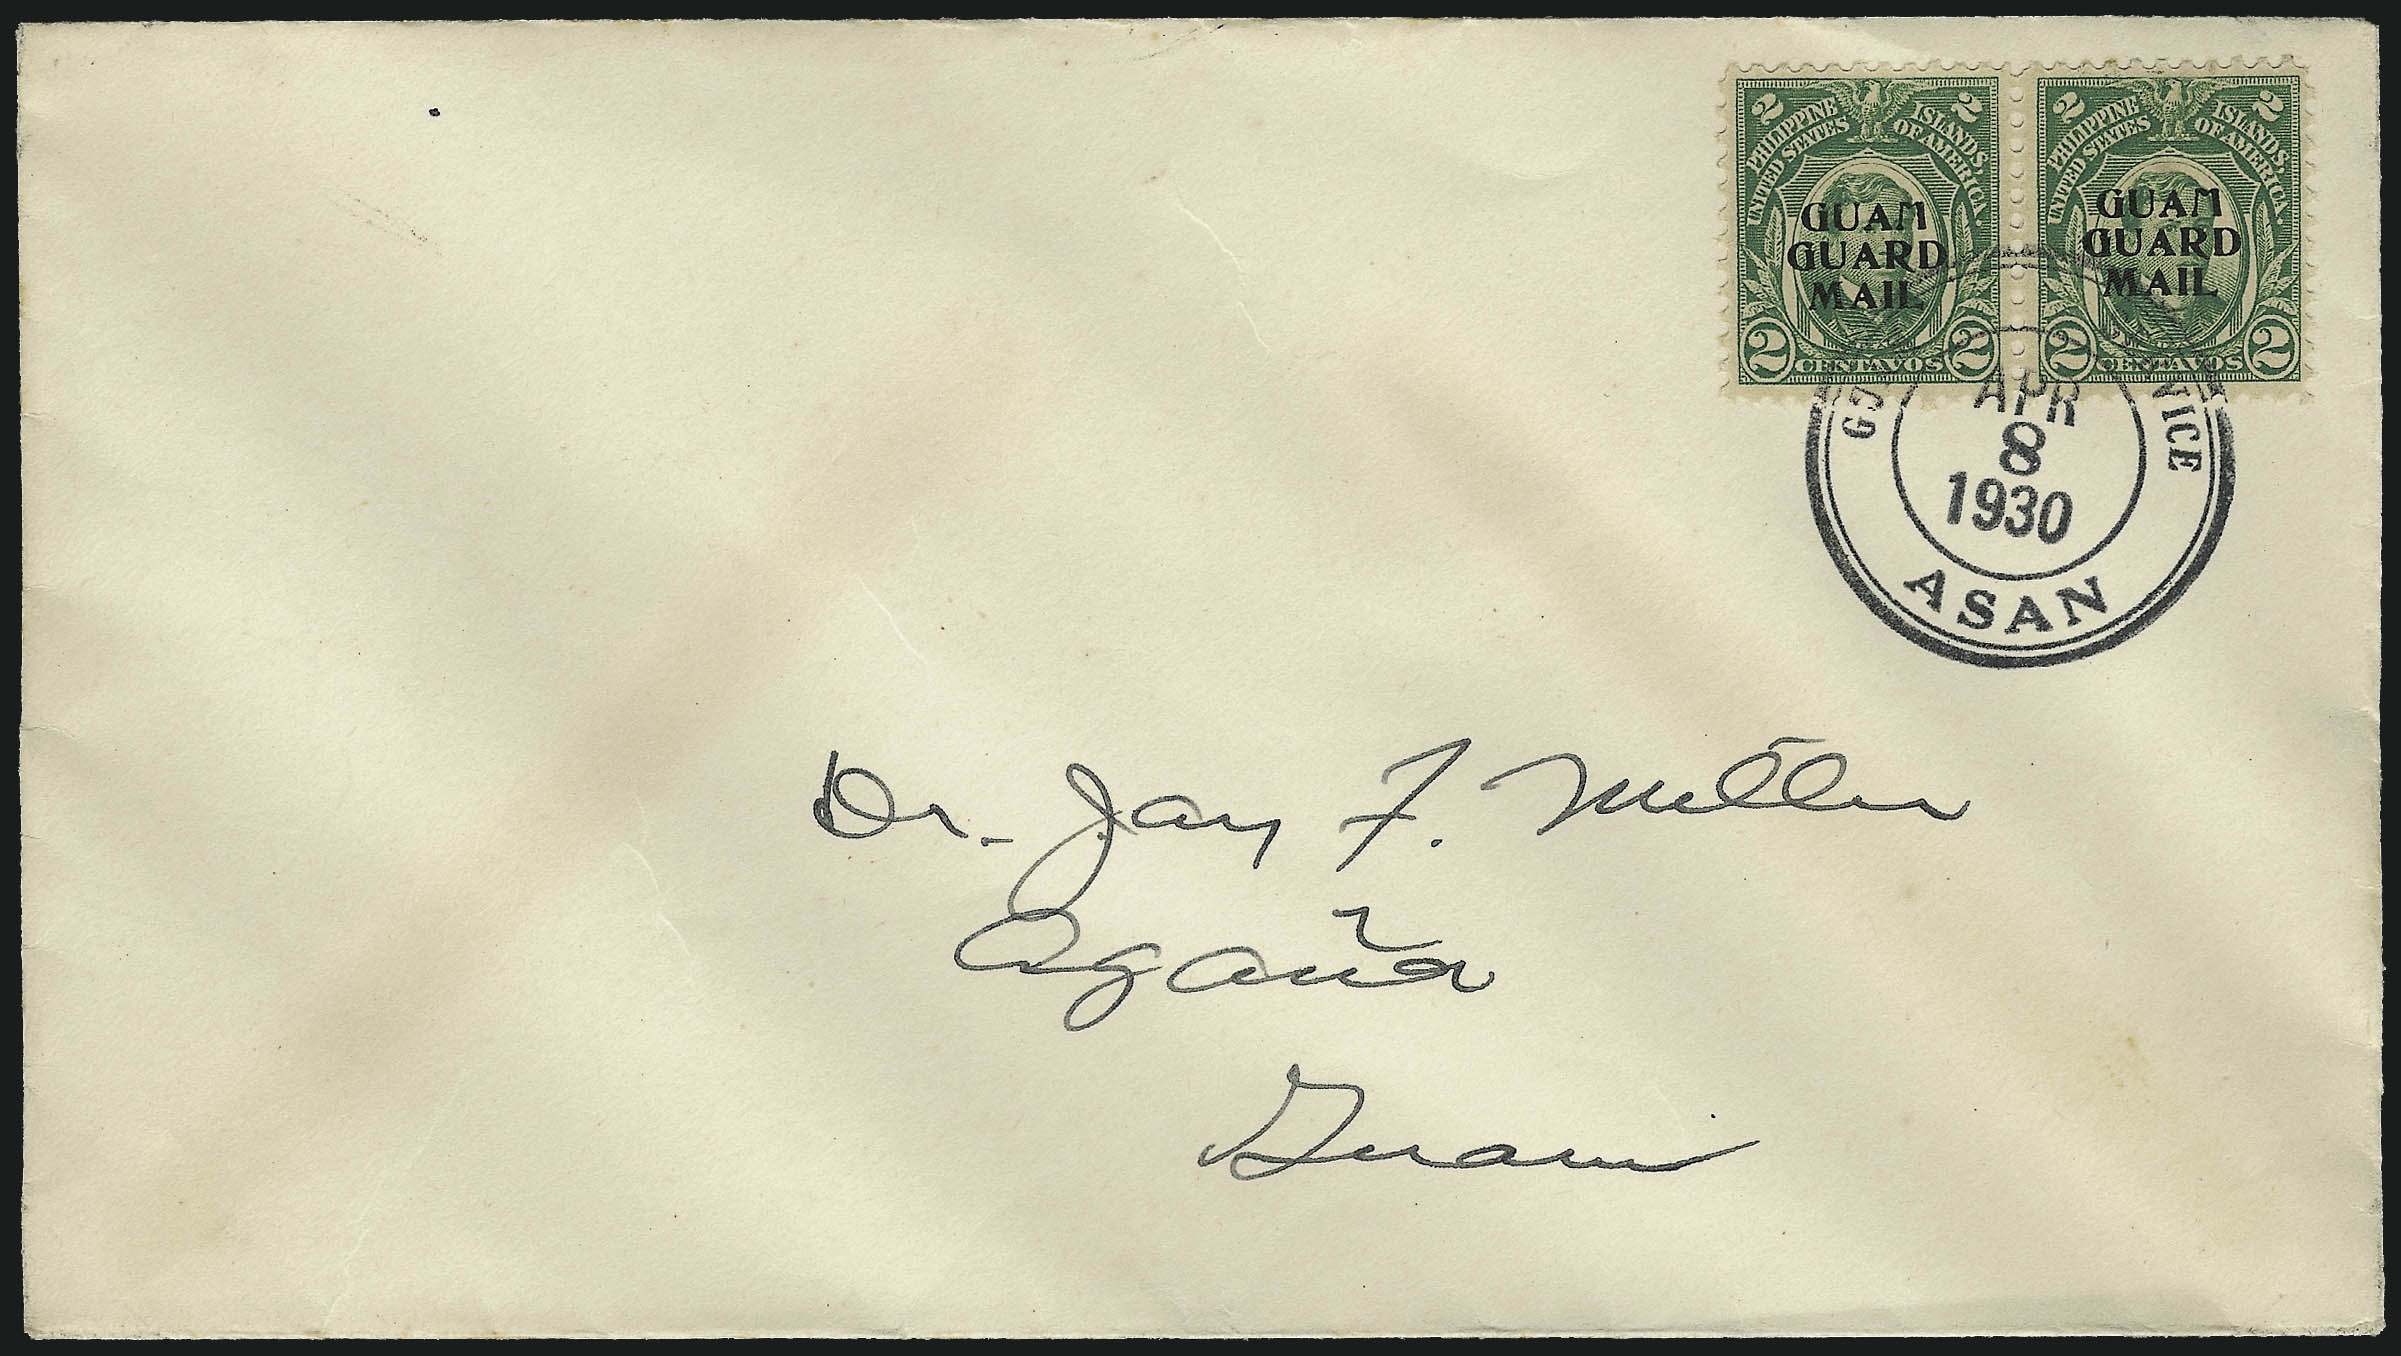 2 2
PHILIPPINE ISLANDS,
UNITED STATES OF AMERICA.
GUAM
GUARD
MAIL
2 CENTAVOS 2
2 2
PHILIPPINE ISLANDS,
UNITED STATES OF AMERICA.
GUAM
GUARD
MAIL
2 CENTAVOS 2
APR
8
1930
ASAN
Dr. Jay F. Miller
Agaña
Guam